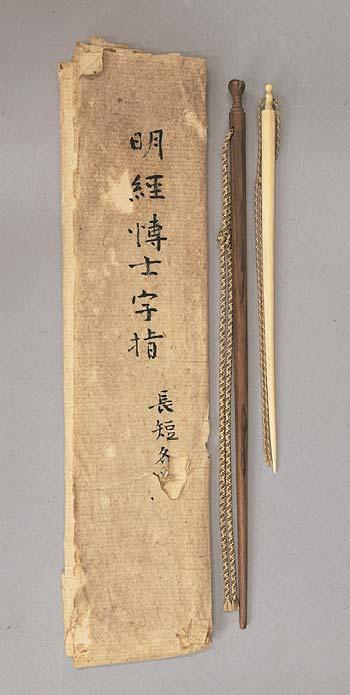 明經博士字指
長短各